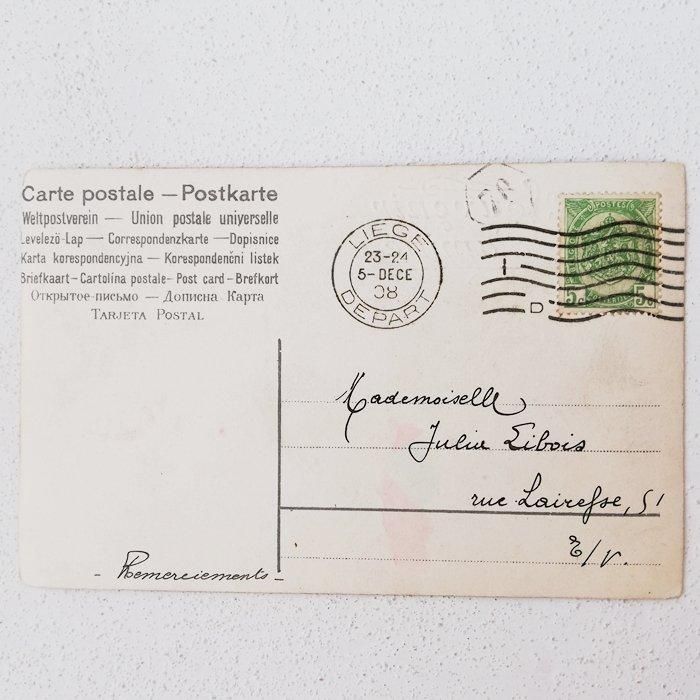 Carte postale — Postkarte
Weltpostverein — Union postale universelle
Levelező-Lap — Correspondenzkarte — Dopisnice
Karta korespondencyjna — Korespondenční listek
Briefkaart — Cartolina postale — Post card — Brefkort
Открытое письмо — Дописна Карта
TARJETA POSTAL
LIEGE
23-24
5-DECE
08
DEPART
D
POSTES
5c 5c
Mademoiselle
Julia Libois
rue Lairesse, 51
E/V.
- Remerciements -